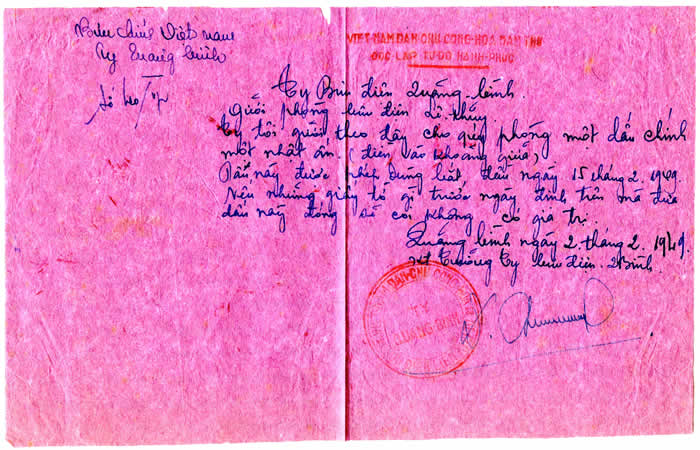 Bưu chính Việt nam
Ty Quảng bình
Số
VIỆT-NAM DÂN CHỦ CỘNG-HÒA DÂN THỨ
ĐỘC LẬP TỰ DO HẠNH-PHÚC
Ty Bưu điện Quảng-bình.
gửi phòng bưu điện Lệ thủy.
Ty tôi gửi theo đây cho quý phòng một dấu chính
một nhật ấn. (điền vào khoảng giữa)
Dấu này được phép dùng bắt đầu ngày 15 tháng 2. 1949.
Nếu những giấy tờ gì trước ngày định trên mà đưa
dấu này đóng sẽ coi không có giá trị.
Quảng bình ngày 2. tháng 2. 1949.
Trưởng Ty bưu điện. Q Bình.
DÂN-CHỦ CỘNG-HÒA
QUẢNG BÌNH